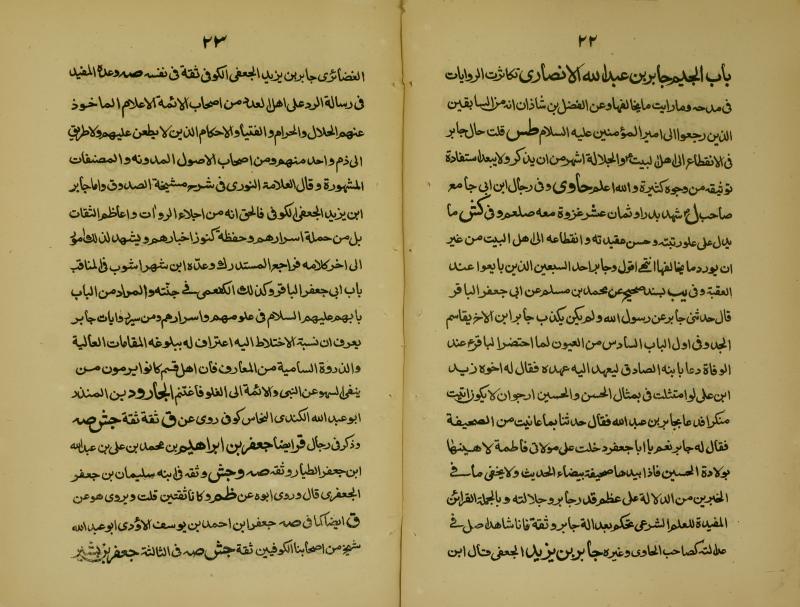 ٢٢
باب الجليم جابر بن عبد الله الانصارى تكاثرت الروايات
فى مدحه وما رايت ما يخالفها وعن الفضل بن شاذان انه من السابقين
الذين رجعوا الى امير المؤمنين عليه السلام طس قلت حال جابر
فى الانقطاع الى اهل البيت والجلالة اشهر من ان يذكر ولا يبعد استفادة
توثيقه من وجوه كثيرة والله اعلم حاوى وفى رجال ابن ابى جامع
صاحب ل شهد بدرا وثمان عشر غزوة معه صلعم وفى كش ما
يدل على علو رتبته وحسن عقيدته وانقطاعه الى اهل البيت من غير
ان يورد ما يخالفها انتهى اقول وجابر احد السبعين الذين بايعوا عند
العقبة وفى يب بسند صحيح عن محمد بن مسلم عن ابى جعفر الباقر
قال حدثنى جابر عن رسول الله ولم يكن يكذب جابر ابن الاخ يقاسم
الجد وفى اول الباب السادس من العيون لما احتضر الباقر ع عند
الوفاة دعا بابنه الصادق ليعهد اليه عهده فقال له اخوه زيد
ابن على لو امتثلت فى بمثال الحسن والحسين ارجو ان لا يكون اتيت
منكرا فدعا بجابر بن عبد الله فقال حدثنا بما عاينت من الصحيفة
فقال له جابر نعم يا ابا جعفر دخلت على مولاتى فاطمة لاهنيئها
بولادة الحسين فاذا بيدها صحيفة بيضاء الحديث ولا يخفى ما فى
الخبرين من الدلالة على عظم قدر جابر وجلالته وبالجملة القرائن
المفيدة للعلم الشرعى تحكم بعدالة جابر وثقة فانا شاهدنا صل فى
عدالته كصاحب الحاوى وغيره جابر بن يزيد الجعفى قال ابن
٢٣
الغضائرى جابر بن يزيد الجعفى الكوفى ثقة فى نفسه صه وعده المفيد
فى رسالة الرد على اهل العدد من اصحاب الائمة الاعلام الماخوذ
عنهم الحلال والحرام والفتيا والاحكام الذين لا يطعن عليهم ولا طريق
الى ذم واحد منهم ومن اصحاب الاصول المدونه والمصنفات
المشهورة وقال العلامة النورى فى شرح مشيخة الصدوق واما جابر
ابن يزيد الجعفى الكوفى فالحق انه من اجلاء الرواة واعاظم الثقات
بل من حملة اسرارهم وحفظة كنوز اخبارهم ويشهد لذلك امور
الى اخر كلامه فراجع المستدرك وعده ابن شهر اشوب فى المناقب
باب ابى جعفر الباقر وكذلك الكفعمى فى جنته والمراد من الباب
بابهم عليهم السلام فى علومهم واسرارهم ومن سير دوايات جابر
يعرف ان نسبة الاختلاط اليه اعتراف له ببلوغه المقامات العالية
والذروة السامية من المعارف فان اهل قم كانوا يرمون من
ينفى السهو عن النبى والائمة الى الغلو فاغتنم الجارود بن المنذر
ابو عبد الله الكندى النخاس كوفى روى عن ق ثقة ثقة جش صه
وذكر فى رجال قر ايضا جعفر بن ابراهيم بن محمد بن على بن عبد الله
ابن جعفر الطيار وثقه صه وجش وثقه فى ابنه سليمان بن جعفر
الجعفرى قال وروى ابوه عن ظم وكانا ثقتين قلت ويروى هو عن
ق ايضا كما فى صه جعفر ابن احمد بن يوسف الاؤدى ابو عبد الله
شيخ من اصحابنا الكوفيين ثقة جش صه فى الثالثة جعفر بن بشير